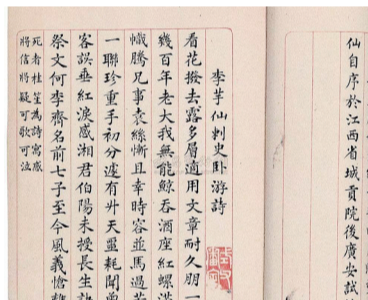 仙自序於江西省城貢院後廣安試
李芋仙刺史卧游詩
看花撥去露多層適用文章耐久朋一
幾百年老大我無能鯨吞酒座紅螺
幟騰兄事袁絲慚且幸時容並馬過
一聯珍重手初分遽有廾天噩耗聞
客誤垂紅淚感湘君伯陽未授長生
祭文何李齊名前七子至今風義愴
死者杜笙為詩寓感
將信將疑可歌可泣